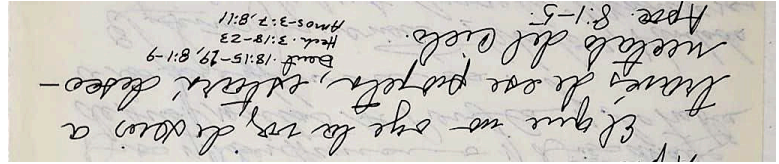 El que no oye la voz de Dios a
través de ese profeta, estará desco-
nectado del cielo.
Deut. 18:15-19, 8:1-9
Hech. 3:18-23
Amos-3:7, 8:11
Apoc. 8:1-5.